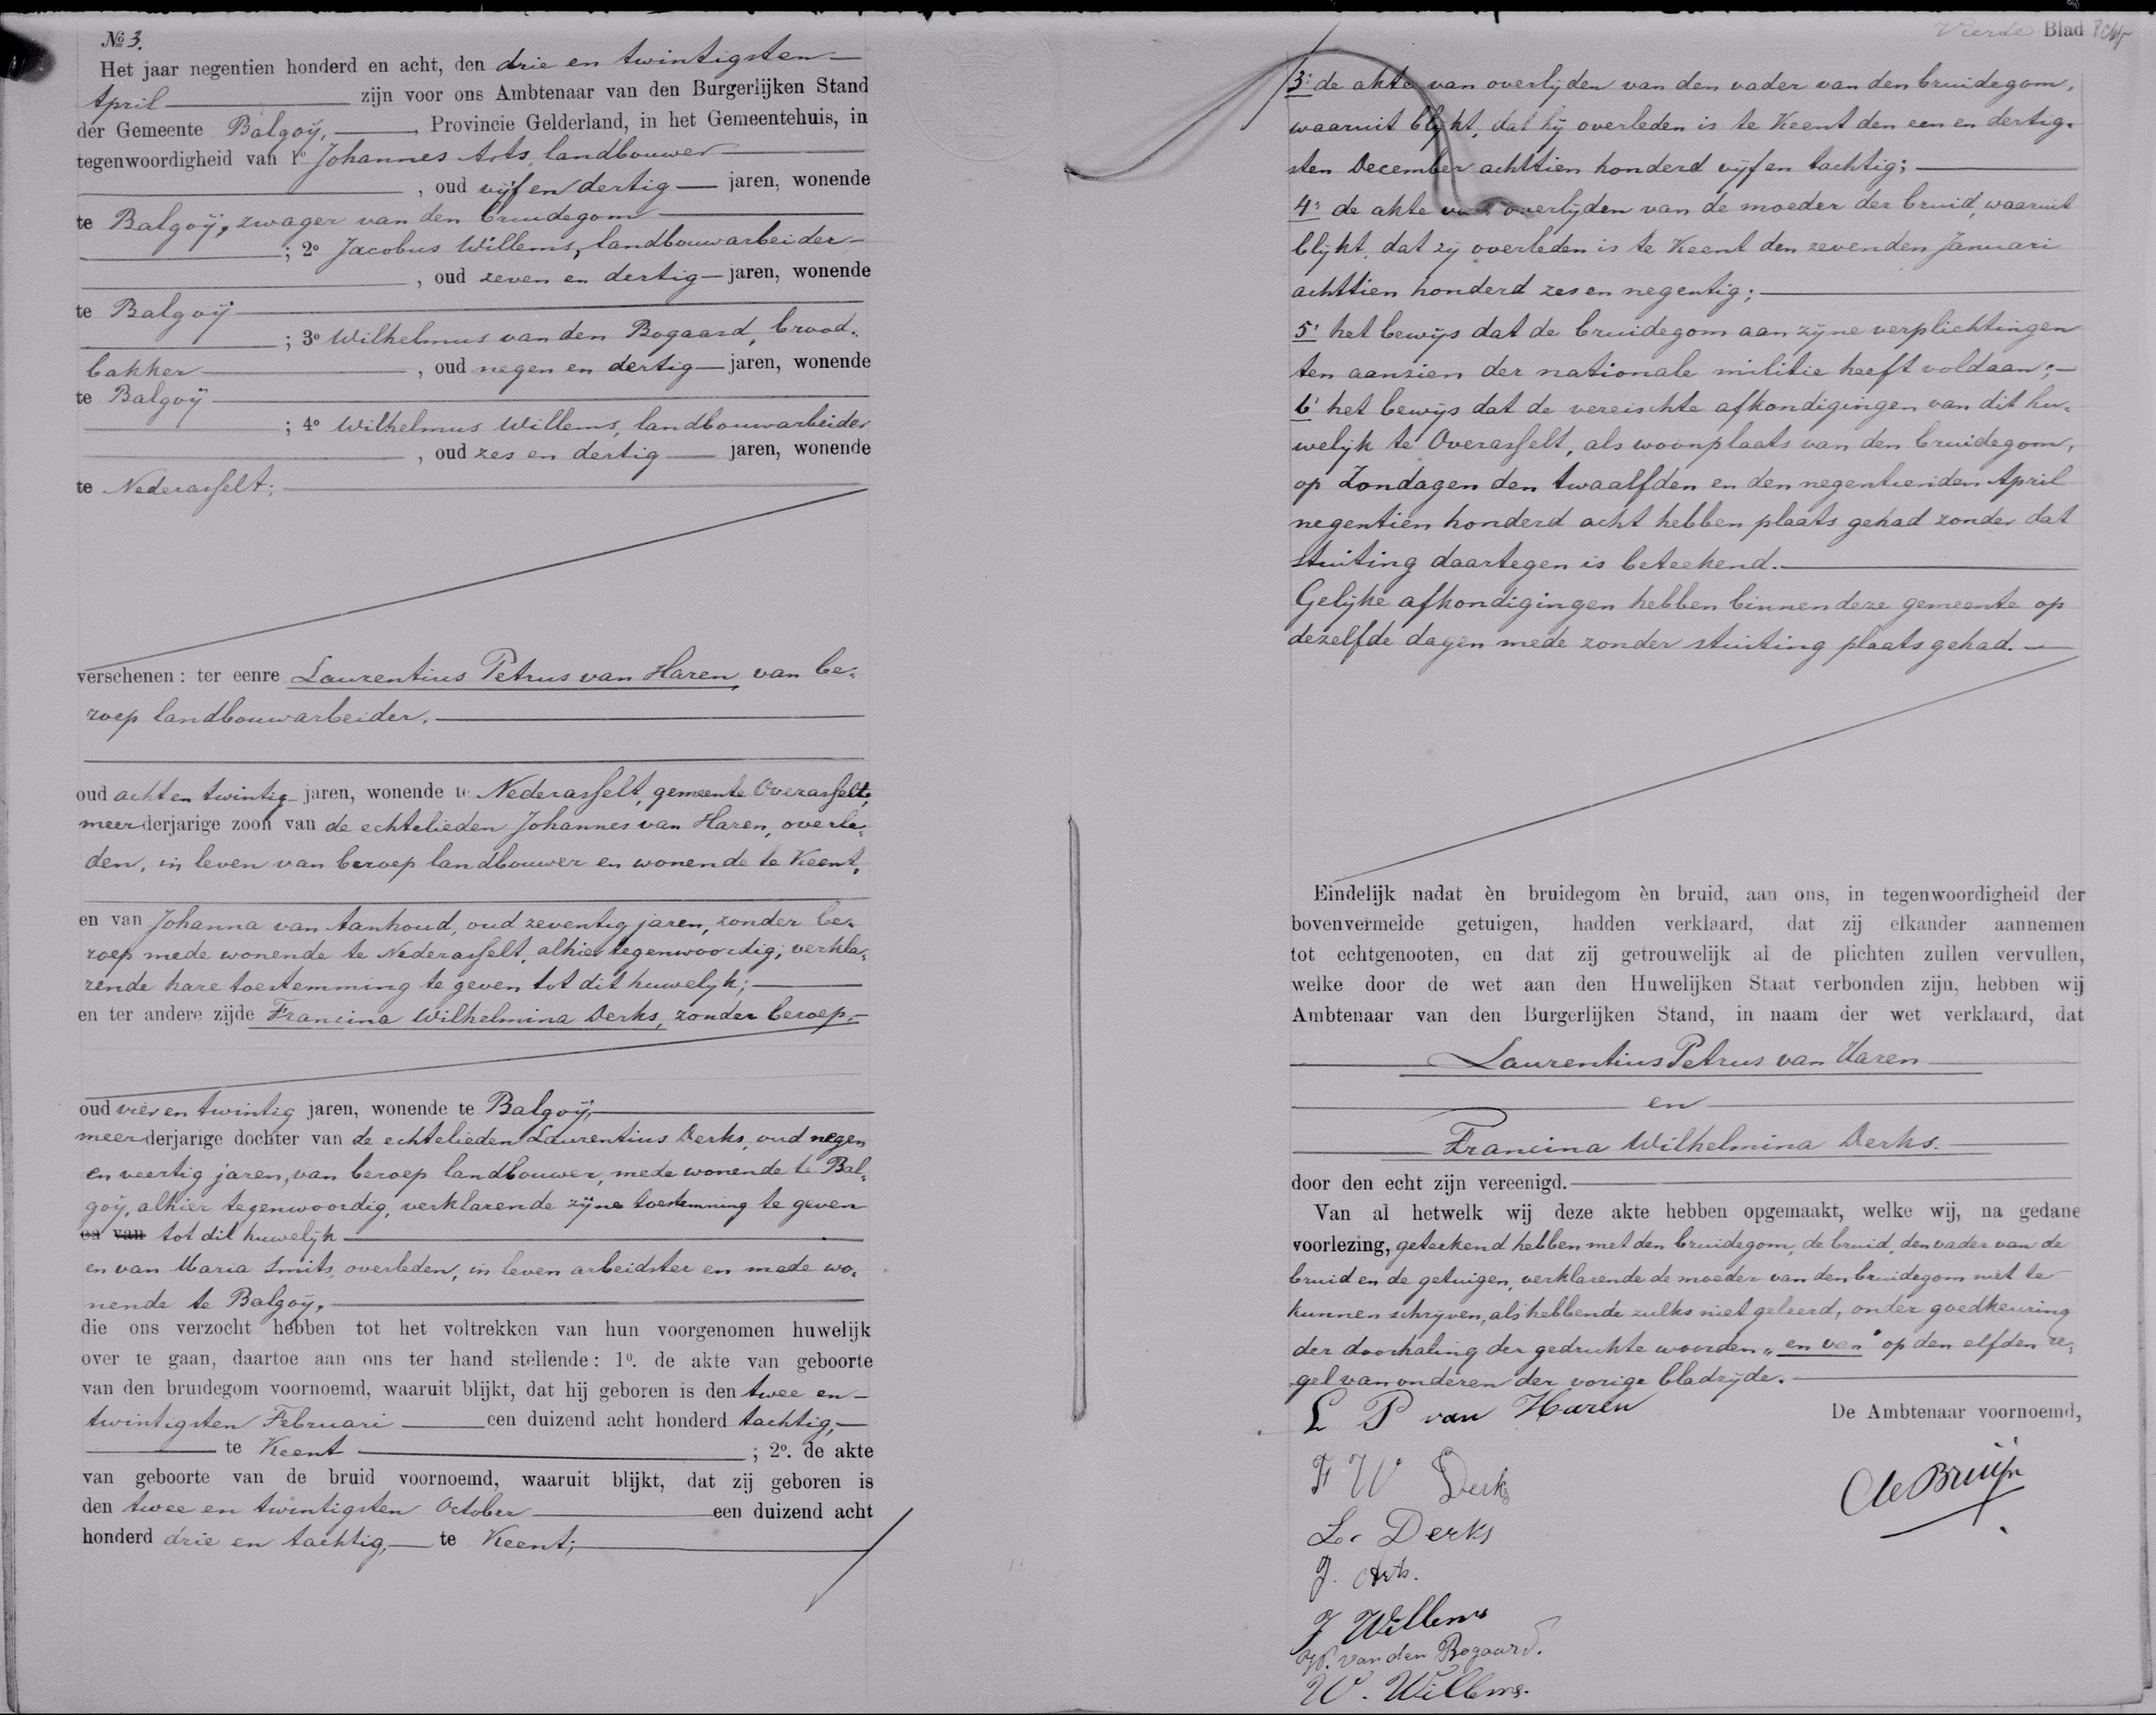 No 3.
Het jaar negentien honderd en acht, den drie en twintigsten
April zijn voor ons Ambtenaar van den Burgerlijken Stand
der Gemeente Balgoij, Provincie Gelderland, in het Gemeentehuis, in
tegenwoordigheid van 1o Johannes Arts, landbouwer
, oud vijf en dertig jaren, wonende
te Balgoij, zwager van den bruidegom
; 2o Jacobus Willems, landbouwarbeider
, oud zeven en dertig jaren, wonende
te Balgoij
; 3o Wilhelmus van den Bogaard, brood-
bakker , oud negen en dertig jaren, wonende
te Balgoij
; 4o Wilhelmus Willems, landbouwarbeider
, oud zes en dertig jaren, wonende
te Nederasselt;
verschenen: ter eenre Laurentius Petrus van Haren, van be-
roep landbouwarbeider,
oud acht en twintig jaren, wonende te Nederasselt, gemeente Overasselt,
meerderjarige zoon van de echtelieden Johannes van Haren, overle-
den, in leven van beroep landbouwer en wonende te Keent,
en van Johanna van Aanhoud, oud zeventig jaren, zonder be-
roep mede wonende te Nederasselt, alhier tegenwoordig, verkla-
rende hare toestemming te geven tot dit huwelijk;
en ter andere zijde Francina Wilhelmina Derks, zonder beroep,
oud vier en twintig jaren, wonende te Balgoij,
meerderjarige dochter van de echtelieden Laurentius Derks, oud negen
en veertig jaren, van beroep landbouwer, mede wonende te Bal-
goij, alhier tegenwoordig, verklarende zijne toestemming te geven
en van tot dit huwelijk
en van Maria Smits, overleden, in leven arbeidster en mede wo-
nende te Balgoij,
die ons verzocht hebben tot het voltrekken van hun voorgenomen huwelijk
over te gaan, daartoe aan ons ter hand stellende: 1o. de akte van geboorte
van den bruidegom voornoemd, waaruit blijkt, dat hij geboren is den twee en
twintigsten Februari een duizend acht honderd tachtig,
te Keent ; 2o. de akte
van geboorte van de bruid voornoemd, waaruit blijkt, dat zij geboren is
den twee en twintigsten October een duizend acht
honderd drie en tachtig, te Keent;
Vierde Blad
3o de akte van overlijden van den vader van den bruidegom,
waaruit blijkt, dat hij overleden is te Keent den een en dertig-
sten December achttien honderd vijf en tachtig;
4o de akte van overlijden van de moeder der bruid, waaruit
blijkt, dat zij overleden is te Keent den zevenden Januari
achttien honderd zes en negentig;
5o het bewijs dat de bruidegom aan zijne verplichtingen
ten aanzien der nationale militie heeft voldaan;
6o het bewijs dat de vereischte afkondigingen van dit hu-
welijk te Overasselt, als woonplaats van den bruidegom,
op Zondagen den twaalfden en den negentienden April
negentien honderd acht hebben plaats gehad zonder dat
stuiting daartegen is beteekend.
Gelijke afkondigingen hebben binnen deze gemeente op
dezelfde dagen mede zonder stuiting plaats gehad.
Eindelijk nadat èn bruidegom èn bruid, aan ons, in tegenwoordigheid der
bovenvermelde getuigen, hadden verklaard, dat zij elkander aannemen
tot echtgenooten, en dat zij getrouwelijk al de plichten zullen vervullen,
welke door de wet aan den Huwelijken Staat verbonden zijn, hebben wij
Ambtenaar van den Burgerlijken Stand, in naam der wet verklaard, dat
Laurentius Petrus van Haren
en
Francina Wilhelmina Derks.
door den echt zijn vereenigd.
Van al hetwelk wij deze akte hebben opgemaakt, welke wij, na gedane
voorlezing, geteekend hebben met den bruidegom, de bruid, den vader van de
bruid en de getuigen, verklarende de moeder van den bruidegom niet te
kunnen schrijven, als hebbende zulks niet geleerd, onder goedkeuring
der doorhaling der gedrukte woorden „en van" op den elfden re-
gel van onderen der vorige bladzijde.
L P van Haren
De Ambtenaar voornoemd,
F W Derks
CdeBruijn
L. Derks
J. Arts.
J Willems
W. van den Bogaard.
W. Willems.